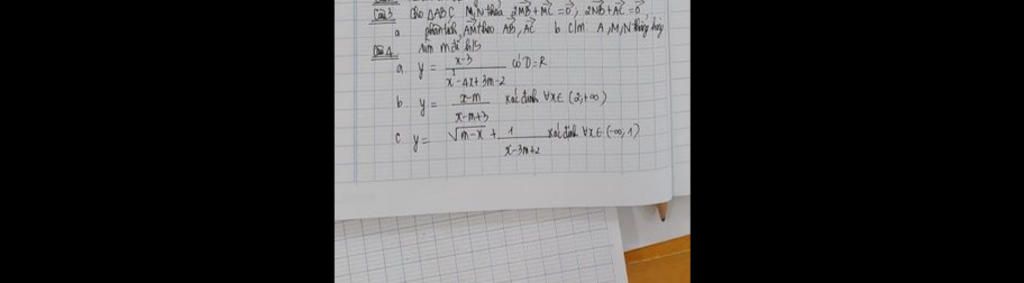 Câu 3 Cho ΔABC M,N thỏa 2MB + MC = 0, 2NB + AC = 0
a phân tích AM theo AB, AC b c/m A, M, N thẳng hàng
Câu 4 tìm m để h/s
a. y = (x-3)/(x²-4x+3m-2) có D=R
b. y = (x-m)/(x-m+3) xác định ∀x∈ (2,+∞)
c. y = √(m-x) + 1/(x-3m+2) xác định ∀x∈(-∞,1)